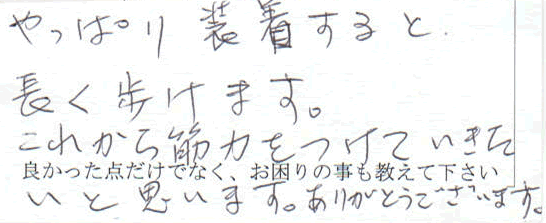 やっぱり装着すると
長く歩けます。
これから筋力をつけていきた
良かった点だけでなく、お困りの事も教えて下さい
いと思います。ありがとうございます。